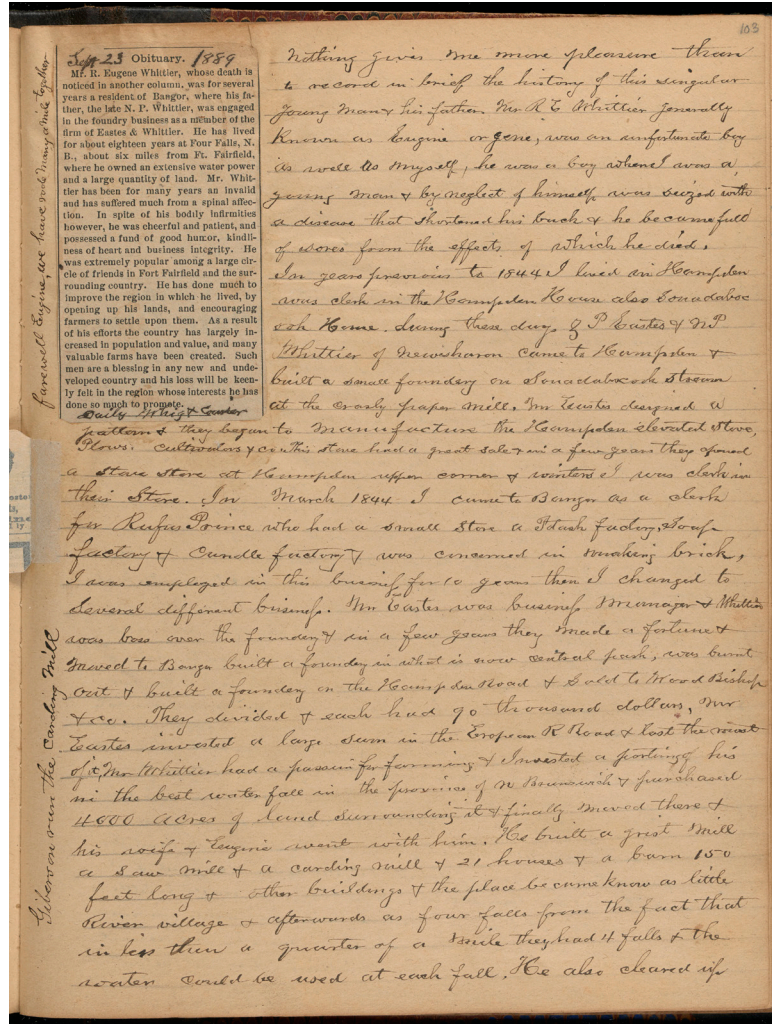 103
Sept 23 Obituary. 1889
Mr. R. Eugene Whittier, whose death is
noticed in another column, was for several
years a resident of Bangor, where his fa-
ther, the late N. P. Whittier, was engaged
in the foundry business as a member of the
firm of Eastes & Whittier. He has lived
for about eighteen years at Four Falls, N.
B., about six miles from Ft. Fairfield,
where he owned an extensive water power
and a large quantity of land. Mr. Whit-
tier has been for many years an invalid
and has suffered much from a spinal affec-
tion. In spite of his bodily infirmities
however, he was cheerful and patient, and
possessed a fund of good humor, kindli-
ness of heart and business integrity. He
was extremely popular among a large cir-
cle of friends in Fort Fairfield and the sur-
rounding country. He has done much to
improve the region in which he lived, by
opening up his lands, and encouraging
farmers to settle upon them. As a result
of his efforts the country has largely in-
creased in population and value, and many
valuable farms have been created. Such
men are a blessing in any new and unde-
veloped country and his loss will be keen-
ly felt in the region whose interests he has
done so much to promote.
Daily Whig & Courier
farewell Eugine, we have rode many a mile together
Nothing gives me more pleasure than
to record in brief the history of this singular
young man & his father. Mr R E Whittier generally
known as Eugine or gene, was an unfortunate boy
as well as myself, he was a boy when I was a
young man & by neglect of himself was seized with
a disease that shortened his back & he became full
of sores from the effects of which he died.
In years previous to 1844 I lived in Hampden
was clerk in the Hampden House also Souadabsc
ook House. During these days P Eastes & N P
Whittier of Newsharon came to Hampden &
built a small foundery on Souadabscook Stream
at the Crosby paper mill. Mr Eastes designed a
pattern & they began to manufacture the Hampden elevated Stove,
Plows. cultivators & co. This stove had a great sale & in a few years they opened
a stove store at Hampden upper corner & winters I was clerk in
their Store. In March 1844 I came to Bangor as a clerk
for Rufus Prince who had a small Store a Potash factory, Soap
factory & Candle factory & was concerned in making brick,
I was employed in this business for 10 years then I changed to
several different business. Mr Eastes was business Manager & Whittier
was boss over the foundery & in a few years they made a fortune &
moved to Bangor built a foundey in what is now central park, was burnt
out & built a foundey on the Hampden Road & Sold to Wood Bishop
& co. They divided & each had 90 thousand dollars, Mr
Eastes invested a large sum in the Eropean R Road & lost the most
of it, Mr Whittier had a passin for farming & Invested a porting of his
in the best water fall in the province of N Brunswick & purchased
4000 acres of land surrounding it & finally moved there &
his wife & Eugine went with him. He built a grist Mill
a saw mill & a carding mill & 21 houses & a barn 150
feet long & other buildings & the place became know as little
River village & afterwards as four falls from the fact that
in less than a quarter of a mile they had 4 falls & the
water could be used at each fall. He also cleared up
Giberson run the carding mill